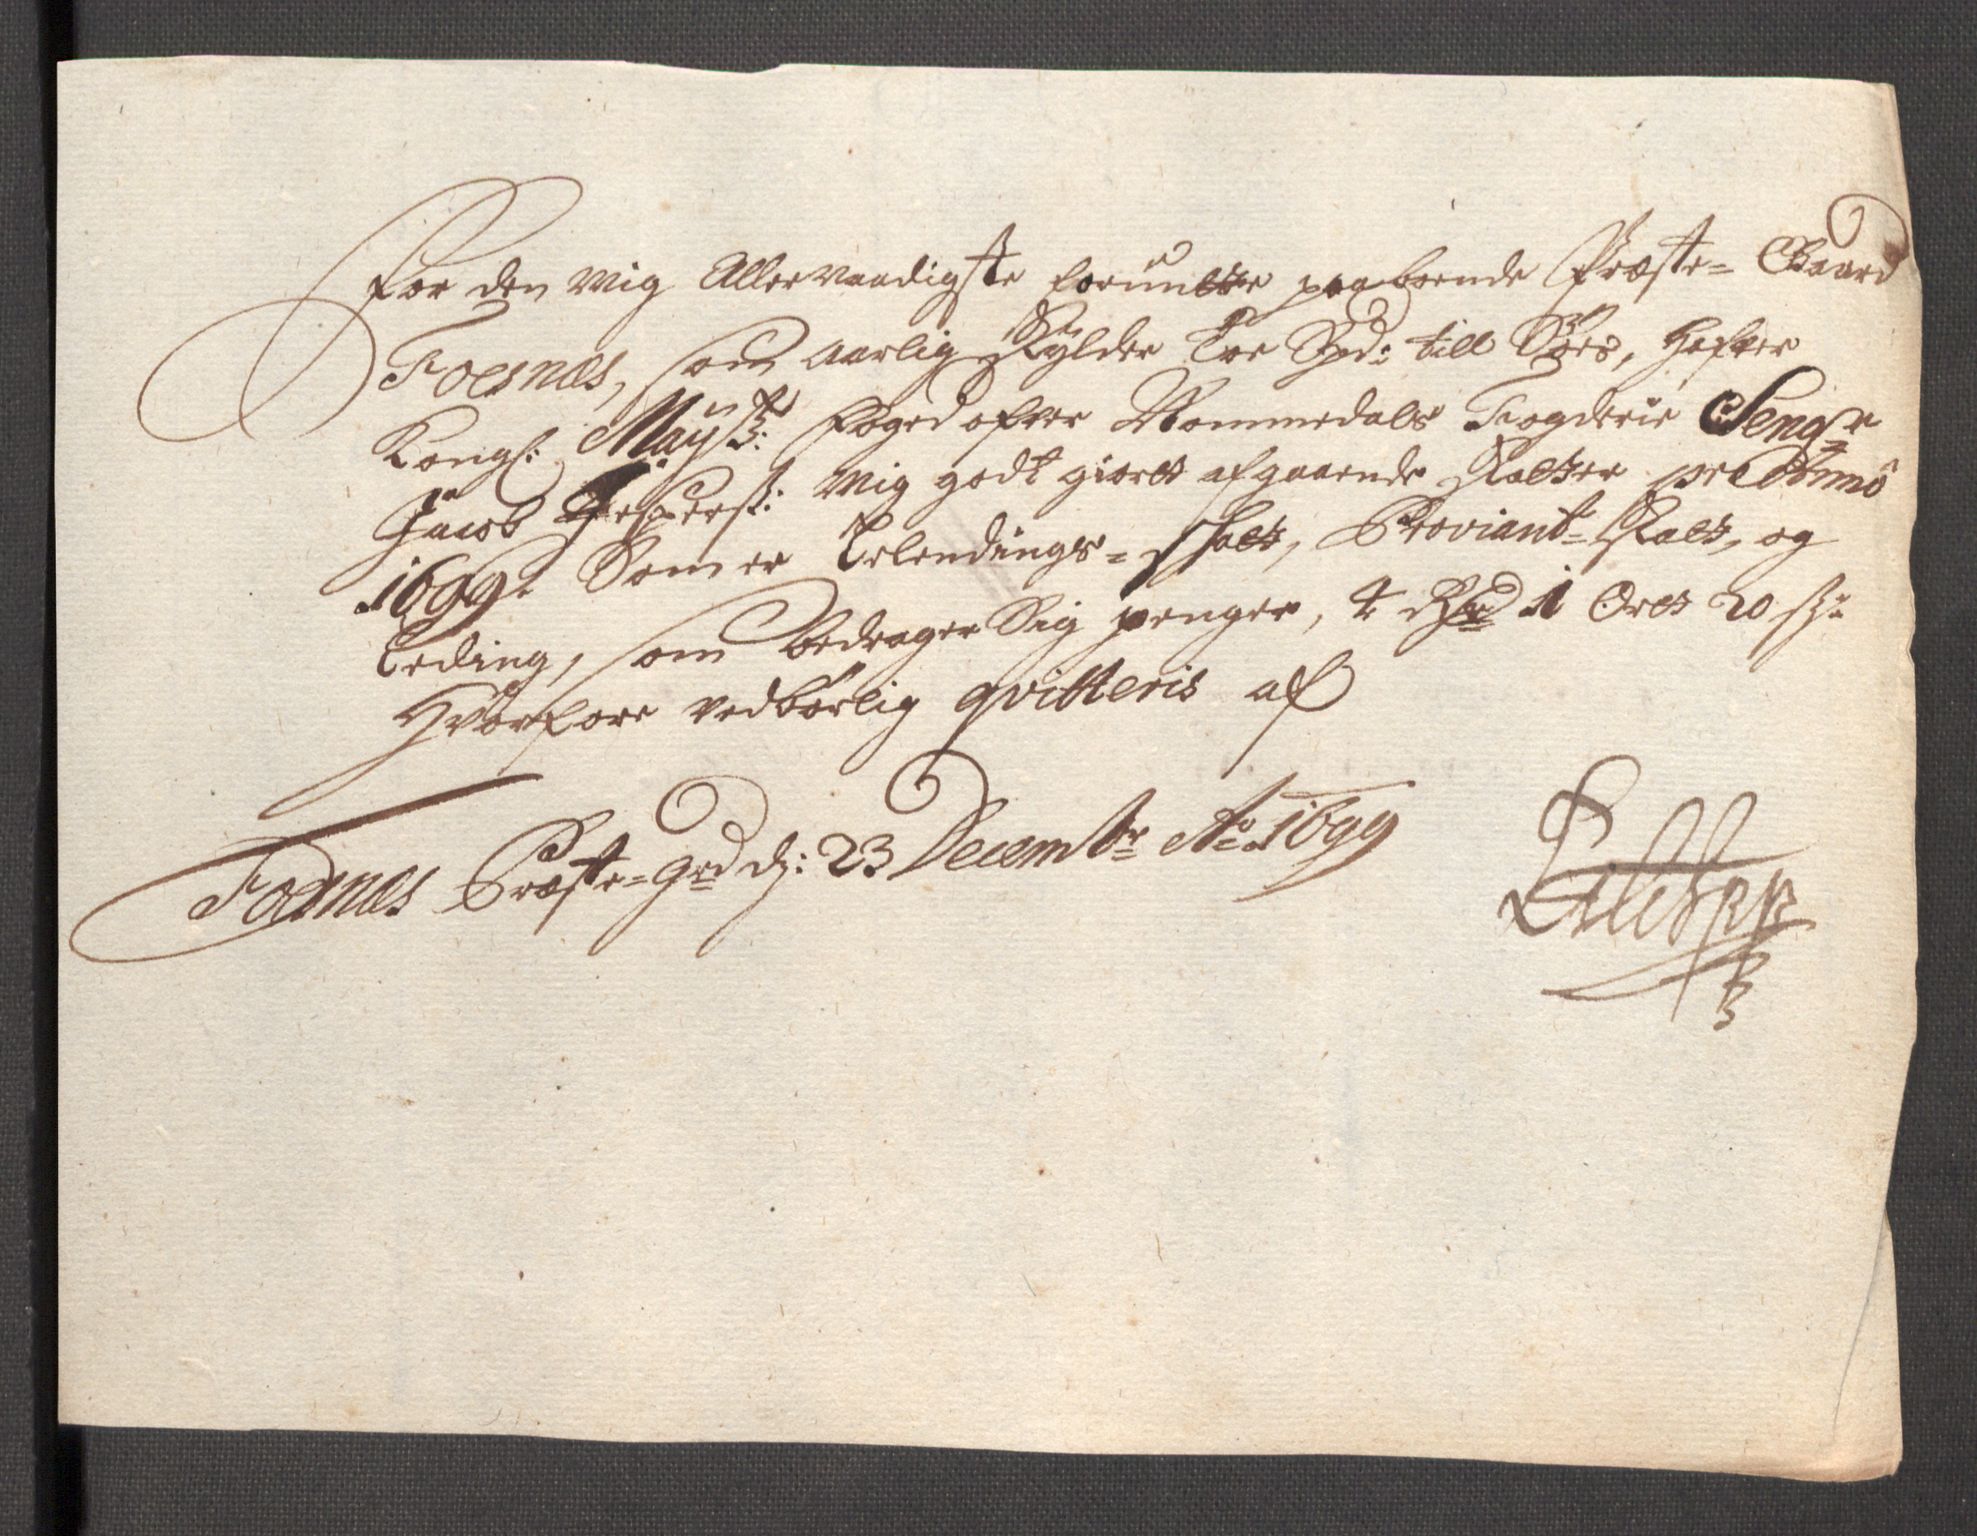 For den mig Allernaadigste forunte paaboende Præste= Gaard
Foesnæs, som aarlig Skylder Toe Spd: till Søes, hafver
Kongl: Mayst: foged ofver Nommedals Fogderie Seng:r
Jacob Jesperss: mig godt giort afgaaende Skatter pro Anno
1699. Som er Leylendings= Skatt, Proviant= Skatt, og
Leding, som bedrager Sig penger, 4 Rd 1 Ort 20 s:
Hvorfore vedbørlig qvitteris af
Foesnæs Præste=grd d: 23 Decembr Ao 1699